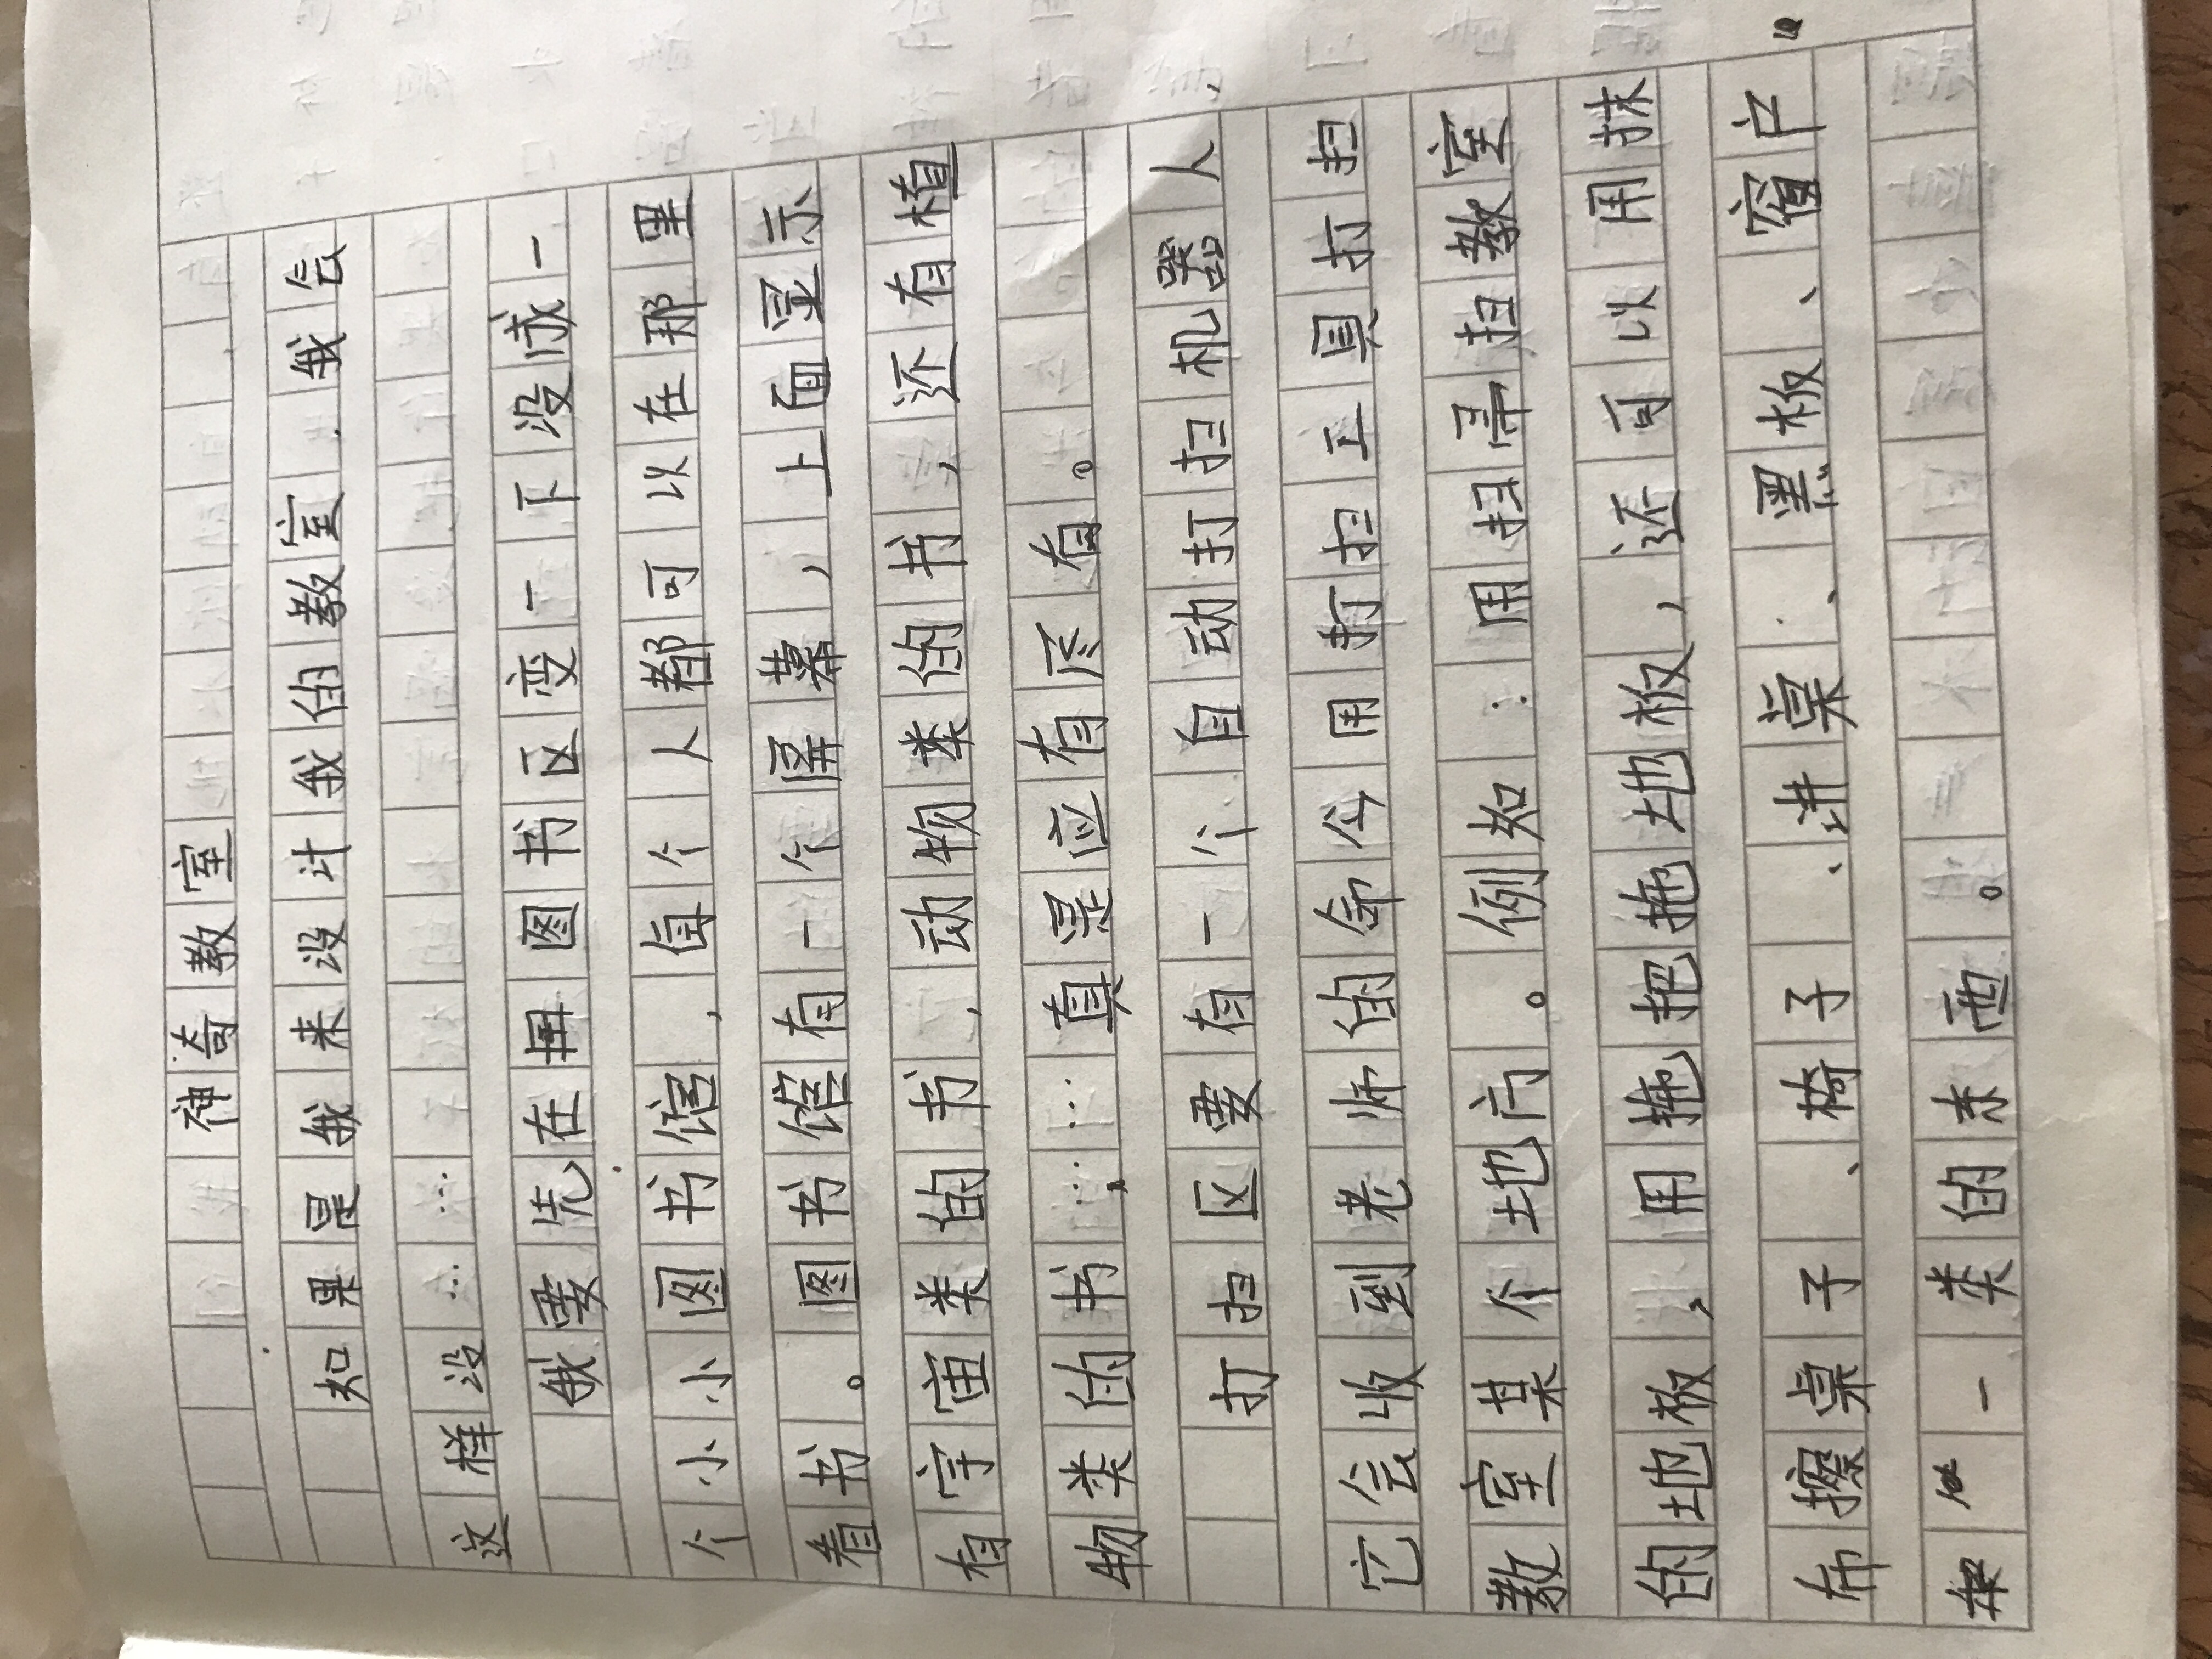 神奇教室
如果是我来设计我的教室，我会
这样设……
我要先在用图书区变一下没成一
个小小图书馆，每个人都可以在那里
看书。图书馆有一个屏幕，上面显示
有宇宙类的书，动物类的书，还有植
物类的书……，真是应有尽有。
打扫区要有一个自动打扫机器人，
它会收到老师的命令用打扫工具打扫
教室某个地方。例如：用扫帚扫教室
的地板，用拖把拖地板，还可以用抹
布擦桌子、椅子、讲桌、黑板、窗户
一类的东西。